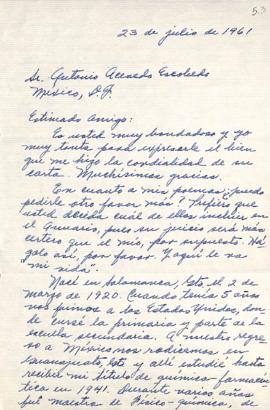 53
23 de julio de 1961
Sr. Antonio Acevedo Escobedo
México, D.F.
Estimado Amigo:
Es usted muy bondadoso y yo
muy tonta para expresarle el bien
que me hizo la cordialidad de su
carta. Muchísimas gracias.
En cuanto a mis poemas: ¿puedo
pedirle otro favor más? Prefiero que
usted decida cuál de ellos incluir en
el Anuario, pues su juicio será más
certero que el mío, por supuesto. Há-
galo así, por favor. Y aquí le va
"mi vida":
Nací en Salamanca, Gto. el 2 de
marzo de 1920. Cuando tenía 5 años
nos fuimos a los Estados Unidos, don
de cursé la primaria y parte de la
escuela secundaria. A nuestro regre-
so a México nos radicamos en
Guanajuato, Gto. y allí estudié hasta
recibir mi título de químico farmacéu-
tica en 1941. Durante varios años
fuí maestra de Físico-química, de